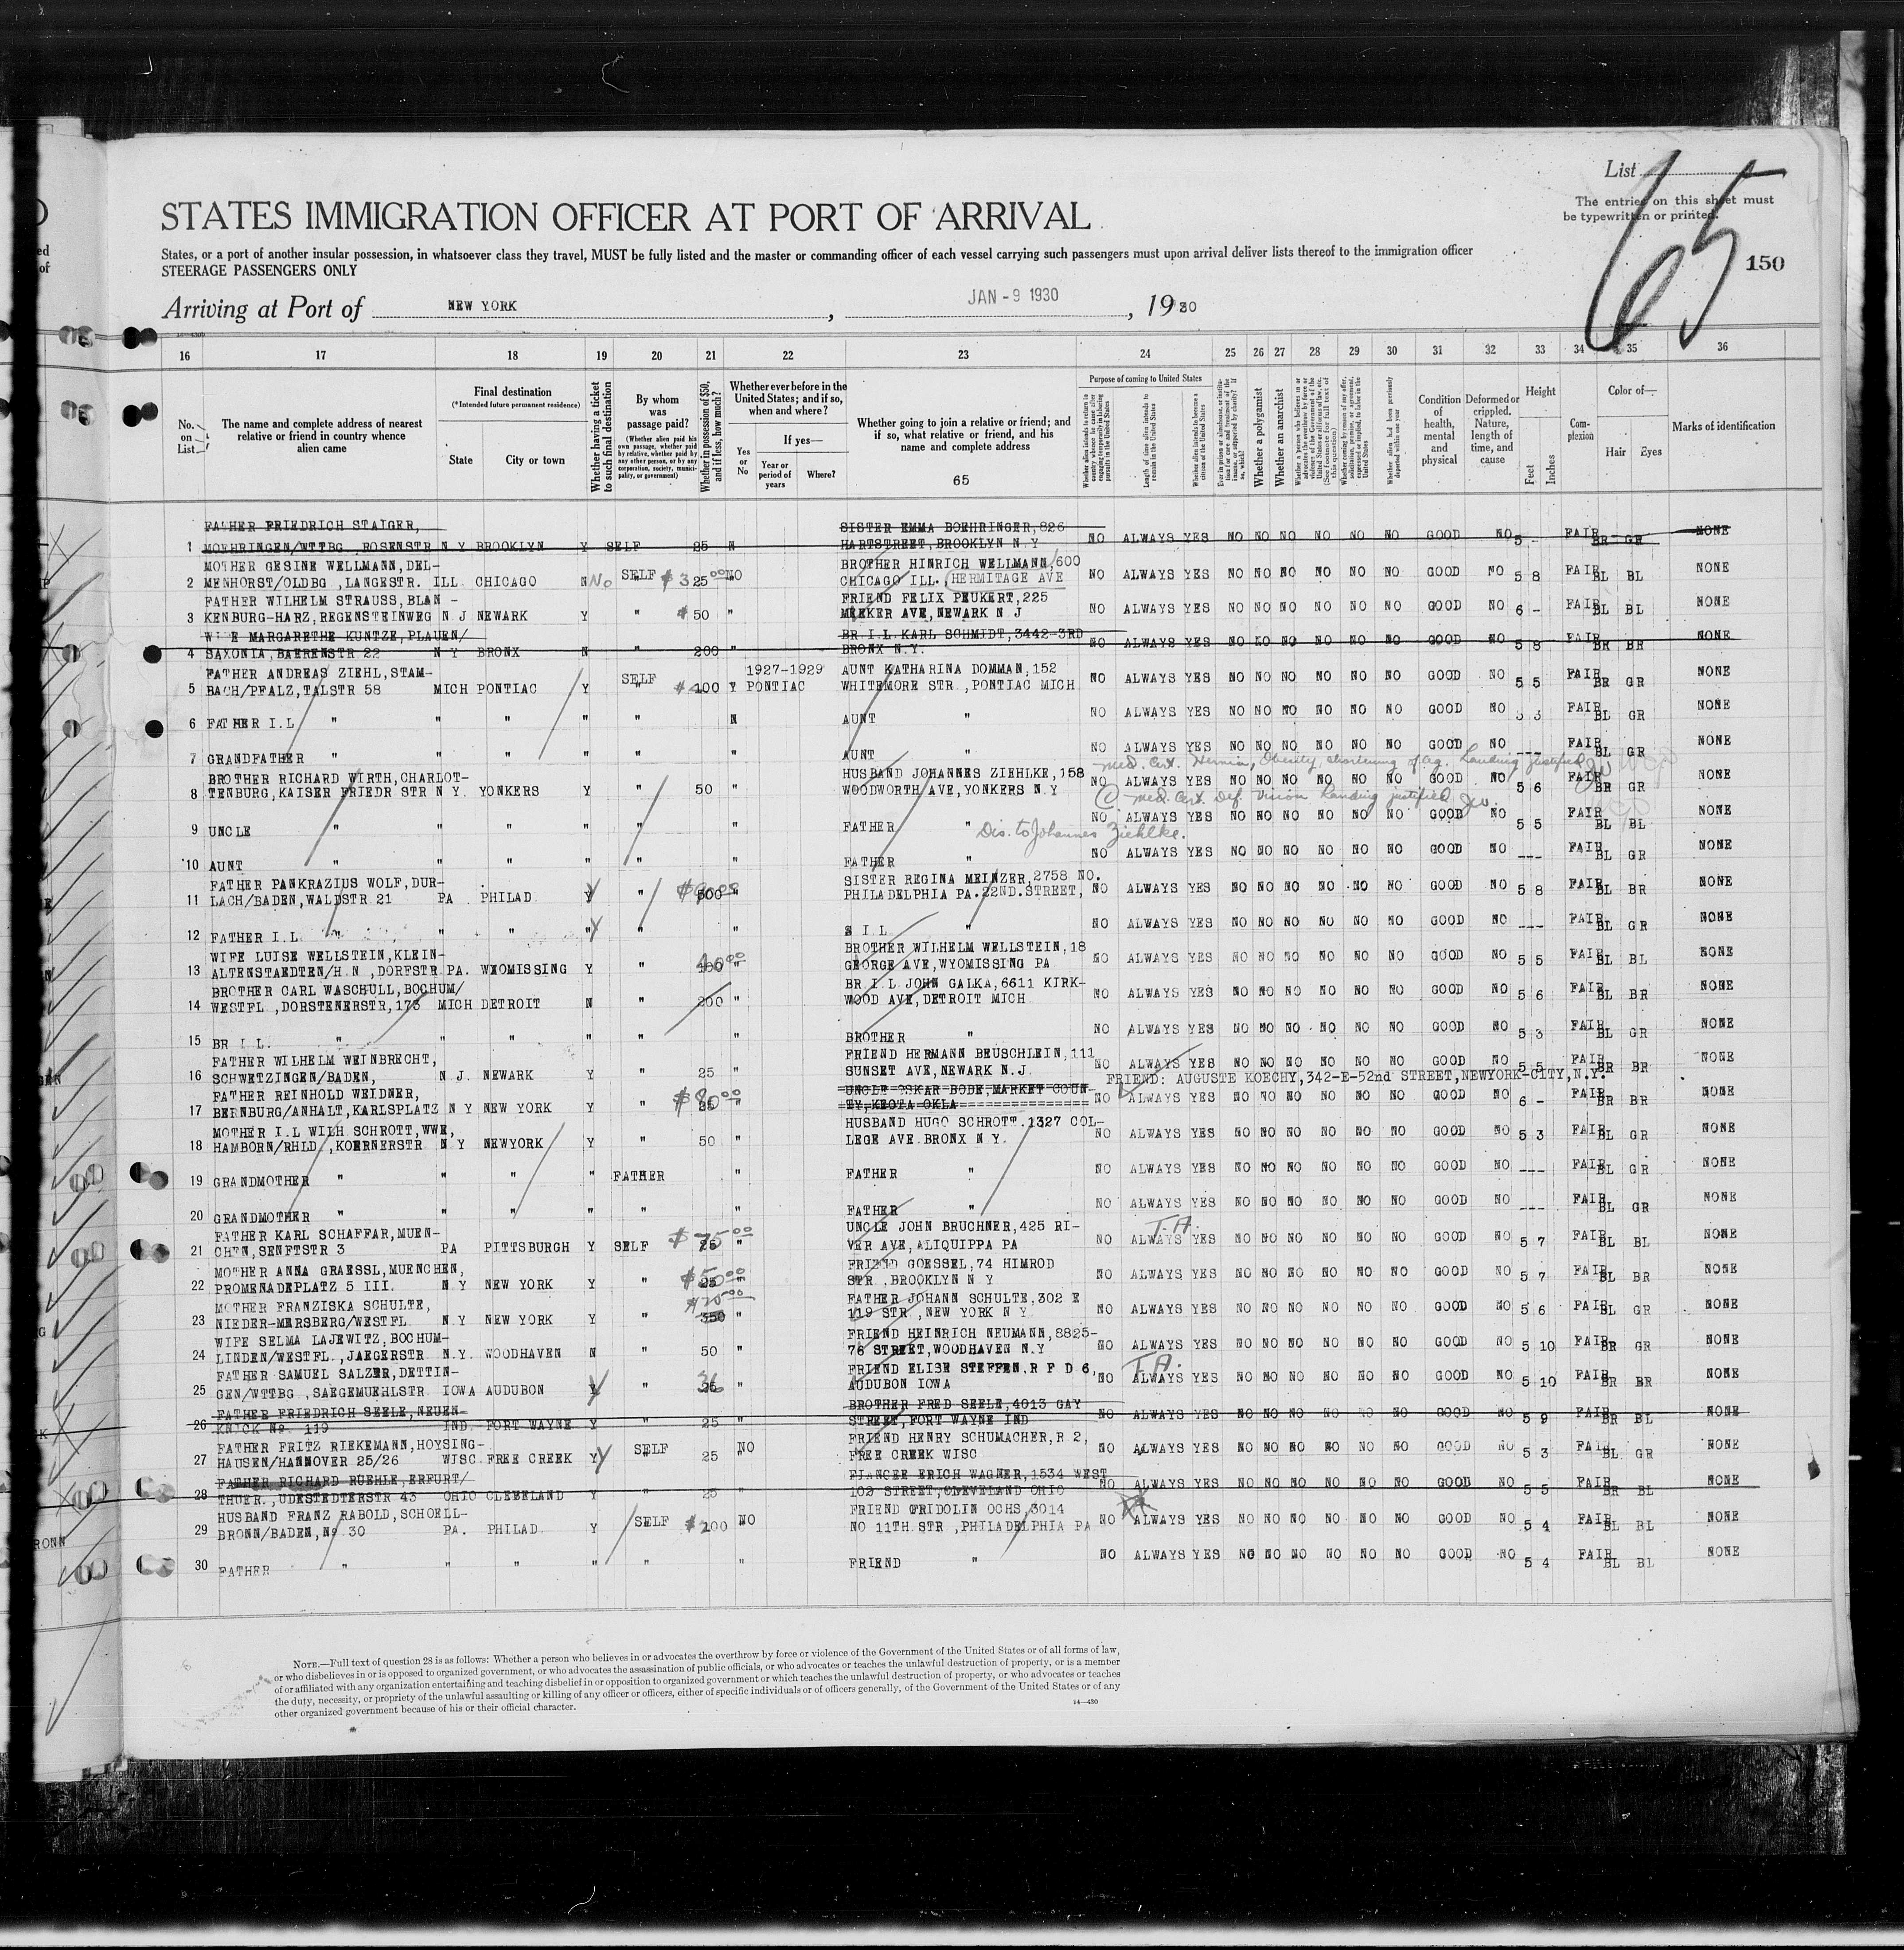 List
65
The entries on this sheet must
be typewritten or printed.
150
STATES IMMIGRATION OFFICER AT PORT OF ARRIVAL
States, or a port of another insular possession, in whatsoever class they travel, MUST be fully listed and the master or commanding officer of each vessel carrying such passengers must upon arrival deliver lists thereof to the immigration officer
STEERAGE PASSENGERS ONLY
Arriving at Port of NEW YORK , JAN - 9 1930 , 1930
16 17 18 19 20 21 22 23 24 25 26 27 28 29 30 31 32 33 34 35 36
No. on List
The name and complete address of nearest relative or friend in country whence alien came
Final destination
(*Intended future permanent residence)
State City or town
Whether having a ticket to such final destination
By whom was passage paid?
(Whether alien paid his own passage, whether paid by relative, whether paid by any other person, or by any corporation, society, municipality, or government)
Whether in possession of $50, and if less, how much?
Whether ever before in the United States; and if so, when and where?
Yes or No
If yes—
Year or period of years Where?
Whether going to join a relative or friend; and if so, what relative or friend, and his name and complete address
65
Purpose of coming to United States
Length of time alien intends to remain in the United States
Whether a polygamist
Whether an anarchist
Condition of health, mental and physical
Deformed or crippled. Nature, length of time, and cause
Height
Feet Inches
Complexion
Color of—
Hair Eyes
Marks of identification
FATHER FRIEDRICH STAIGER, SISTER EMMA BOEHRINGER,826
1 MOEHRINGEN/WTTBG ROSENSTR N Y BROOKLYN Y SELF 25 N HARTSTREET,BROOKLYN N Y NO ALWAYS YES NO NO NO NO NO NO GOOD NO 5 - FAIR BR GR NONE
MOTHER GESINE WELLMANN,DEL- BROTHER HINRICH WELLMANN,600
2 MENHORST/OLDBG ,LANGESTR. ILL CHICAGO N No SELF $ 25 00 NO CHICAGO ILL. HERMITAGE AVE NO ALWAYS YES NO NO NO NO NO NO GOOD NO 5 8 FAIR BL BL NONE
FATHER WILHELM STRAUSS,BLAN - FRIEND FELIX PEUKERT,225
3 KENBURG-HARZ,REGENSTEINWEG N J NEWARK Y " $ 50 " MEEKER AVE,NEWARK N J NO ALWAYS YES NO NO NO NO NO NO GOOD NO 6 - FAIR BL BL NONE
WIFE MARGARETHE KUNTZE,PLAUEN/ BR I.L KARL SCHMIDT,3442-3RD
4 SAXONIA,BAERENSTR 22 N Y BRONX N " 200 " BRONX N.Y. NO ALWAYS YES NO NO NO NO NO NO GOOD NO 5 8 FAIR BR BR NONE
FATHER ANDREAS ZIEHL,STAM- SELF 1927-1929 AUNT KATHARINA DOMMAN,152
5 BACH/PFALZ,TALSTR 58 MICH PONTIAC Y " $ 100 Y PONTIAC WHITEMORE STR ,PONTIAC MICH NO ALWAYS YES NO NO NO NO NO NO GOOD NO 5 5 FAIR BR GR NONE
6 FATHER I.L " " " " " N AUNT " NO ALWAYS YES NO NO NO NO NO NO GOOD NO 5 3 FAIR BL GR NONE
7 GRANDFATHER " " " " " " AUNT " NO ALWAYS YES NO NO NO NO NO NO GOOD NO --- FAIR BL GR NONE
Med. Cert. Hernia, Obesity, shortening of leg. Landing justified
BROTHER RICHARD WIRTH,CHARLOT- HUSBAND JOHANNES ZIEHLKE,158
8 TENBURG,KAISER FRIEDR STR N Y. YONKERS Y " 50 " WOODWORTH AVE,YONKERS N Y NO ALWAYS YES NO NO NO NO NO NO GOOD NO 5 6 FAIR BR GR NONE
Med. Cert. Def. Vision Landing justified
9 UNCLE " " " " " " FATHER " NO ALWAYS YES NO NO NO NO NO NO GOOD NO 5 5 FAIR BL BL NONE
Dis. to Johannes Ziehlke.
10 AUNT " " " " " " FATHER " NO ALWAYS YES NO NO NO NO NO NO GOOD NO --- FAIR BL GR NONE
FATHER PANKRAZIUS WOLF,DUR- SISTER REGINA MEINZER,2758 NO.
11 LACH/BADEN,WALDSTR 21 PA PHILAD Y " " PHILADELPHIA PA.22ND.STREET, NO ALWAYS YES NO NO NO NO NO NO GOOD NO 5 8 FAIR BL BR NONE
12 FATHER I.L " " " " " " S I L " NO ALWAYS YES NO NO NO NO NO NO GOOD NO --- FAIR BL GR NONE
WIFE LUISE WELLSTEIN,KLEIN- BROTHER WILHELM WELLSTEIN,18
13 ALTENSTAEDTEN/H N ,DORFSTR PA. WYOMISSING Y " " GEORGE AVE,WYOMISSING PA NO ALWAYS YES NO NO NO NO NO NO GOOD NO 5 5 FAIR BL BL NONE
BROTHER CARL WASCHULL,BOCHUM/ BR I.L JOHN GALKA,6611 KIRK-
14 WESTFL ,DORSTENERSTR,173 MICH DETROIT N " 200 " WOOD AVE,DETROIT MICH NO ALWAYS YES NO NO NO NO NO NO GOOD NO 5 6 FAIR BL BR NONE
15 BR I L. " " " " " " BROTHER " NO ALWAYS YES NO NO NO NO NO NO GOOD NO 5 3 FAIR BL GR NONE
FATHER WILHELM WEINBRECHT, FRIEND HERMANN BEUSCHLEIN,111
16 SCHWETZINGEN/BADEN, N J. NEWARK Y " 25 " SUNSET AVE,NEWARK N.J. NO ALWAYS YES NO NO NO NO NO NO GOOD NO 5 5 FAIR BR BR NONE
FRIEND: AUGUSTE KOECHY,342-E-52nd STREET,NEWYORK-CITY,N.Y.
FATHER REINHOLD WEIDNER, UNCLE OSKAR BODE,MARKET COUN-
17 BERNBURG/ANHALT,KARLSPLATZ N Y NEW YORK Y " " TY,KEOTA OKLA NO ALWAYS YES NO NO NO NO NO NO GOOD NO 6 - FAIR BR BR NONE
MOTHER I.L WILH SCHROTT,WWE, HUSBAND HUGO SCHROTT.1327 COL-
18 HAMBORN/RHLD ,KOERNERSTR N Y NEWYORK Y " 50 " LEGE AVE BRONX N Y. NO ALWAYS YES NO NO NO NO NO NO GOOD NO 5 3 FAIR BL GR NONE
19 GRANDMOTHER " " " " FATHER " FATHER " NO ALWAYS YES NO NO NO NO NO NO GOOD NO --- FAIR BL GR NONE
20 GRANDMOTHER " " " " " " FATHER " NO ALWAYS YES NO NO NO NO NO NO GOOD NO --- FAIR BL GR NONE
FATHER KARL SCHAFFAR,MUEN- $ 75 00 UNCLE JOHN BRUCHNER,425 RI- T.A.
21 CHEN,SENFTSTR 3 PA PITTSBURGH Y SELF 25 " VER AVE,ALIQUIPPA PA NO ALWAYS YES NO NO NO NO NO NO GOOD NO 5 7 FAIR BL BL NONE
MOTHER ANNA GRAESSL,MUENCHEN, FRIEND GOESSEL,74 HIMROD
22 PROMENADEPLATZ 5 III. N Y NEW YORK Y " 25 " STR .BROOKLYN N Y NO ALWAYS YES NO NO NO NO NO NO GOOD NO 5 7 FAIR BL BR NONE
MOTHER FRANZISKA SCHULTE, FATHER JOHANN SCHULTE,302 E
23 NIEDER-MARSBERG/WESTFL N.Y NEW YORK Y " 350 " 119 STR ,NEW YORK N Y NO ALWAYS YES NO NO NO NO NO NO GOOD NO 5 6 FAIR BL GR NONE
WIFE SELMA LAJEWITZ,BOCHUM- FRIEND HEINRICH NEUMANN,8825-
24 LINDEN/WESTFL ,JAEGERSTR N.Y. WOODHAVEN N " 50 " 76 STREET,WOODHAVEN N.Y NO ALWAYS YES NO NO NO NO NO NO GOOD NO 5 10 FAIR BR GR NONE
FATHER SAMUEL SALZER,DETTIN- FRIEND ELISE STEFFEN.R F D 6, T.A.
25 GEN/WTTBG ,SAEGEMUEHLSTR IOWA AUDUBON Y " " AUDUBON IOWA NO ALWAYS YES NO NO NO NO NO NO GOOD NO 5 10 FAIR BR BR NONE
FATHER FRIEDRICH SEELE,NEUEN- BROTHER FRED SEELE,4013 GAY
26 KNICK No 119 IND FORT WAYNE Y " 25 " STREET,FORT WAYNE IND NO ALWAYS YES NO NO NO NO NO NO GOOD NO 5 9 FAIR BR BL NONE
FATHER FRITZ RIEKEMANN,HOYSING- SELF NO FRIEND HENRY SCHUMACHER,R 2,
27 HAUSEN/HANNOVER 25/26 WISC FREE CREEK Y " 25 FREE CREEK WISC NO ALWAYS YES NO NO NO NO NO NO GOOD NO 5 3 FAIR BL GR NONE
FATHER RICHARD RUEHLE,ERFURT/ FIANCEE ERICH WAGNER,1534 WEST
28 THUER.,UDESTEDTERSTR 43 OHIO CLEVELAND Y " 25 " 102 STREET,CLEVELAND OHIO NO ALWAYS YES NO NO NO NO NO NO GOOD NO 5 5 FAIR BR BL NONE
HUSBAND FRANZ RABOLD,SCHOELL- SELF NO FRIEND FRIDOLIN OCHS,3014
29 BRONN/BADEN,No 30 PA. PHILAD Y $ 200 NO 11TH STR ,PHILADELPHIA PA NO ALWAYS YES NO NO NO NO NO NO GOOD NO 5 4 FAIR BL BL NONE
30 FATHER " " " " " " FRIEND " NO ALWAYS YES NO NO NO NO NO NO GOOD NO 5 4 FAIR BL BL NONE
NOTE.—Full text of question 28 is as follows: Whether a person who believes in or advocates the overthrow by force or violence of the Government of the United States or of all forms of law,
or who disbelieves in or is opposed to organized government, or who advocates the assassination of public officials, or who advocates or teaches the unlawful destruction of property, or is a member
of or affiliated with any organization entertaining and teaching disbelief in or opposition to organized government or which teaches the unlawful destruction of property, or who advocates or teaches
the duty, necessity, or propriety of the unlawful assaulting or killing of any officer or officers, either of specific individuals or of officers generally, of the Government of the United States or of any
other organized government because of his or their official character.
14—430